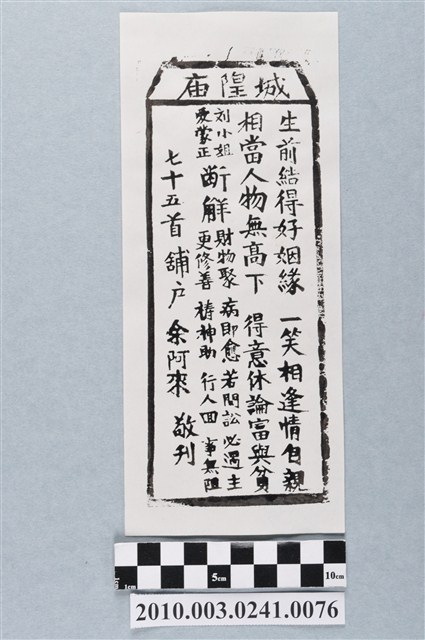 城隍庙
生前結得好姻緣 一笑相逢情自親
相當人物無高下 得意休論富與貧
刘小姐
愛蒙正
断觧
財物聚 病即愈 若問訟 必遇主
更修善 祷神助 行人回 事無阻
七十五首 舖户 余阿來 敬刊
1cm 5cm 10cm
2010.003.0241.0076